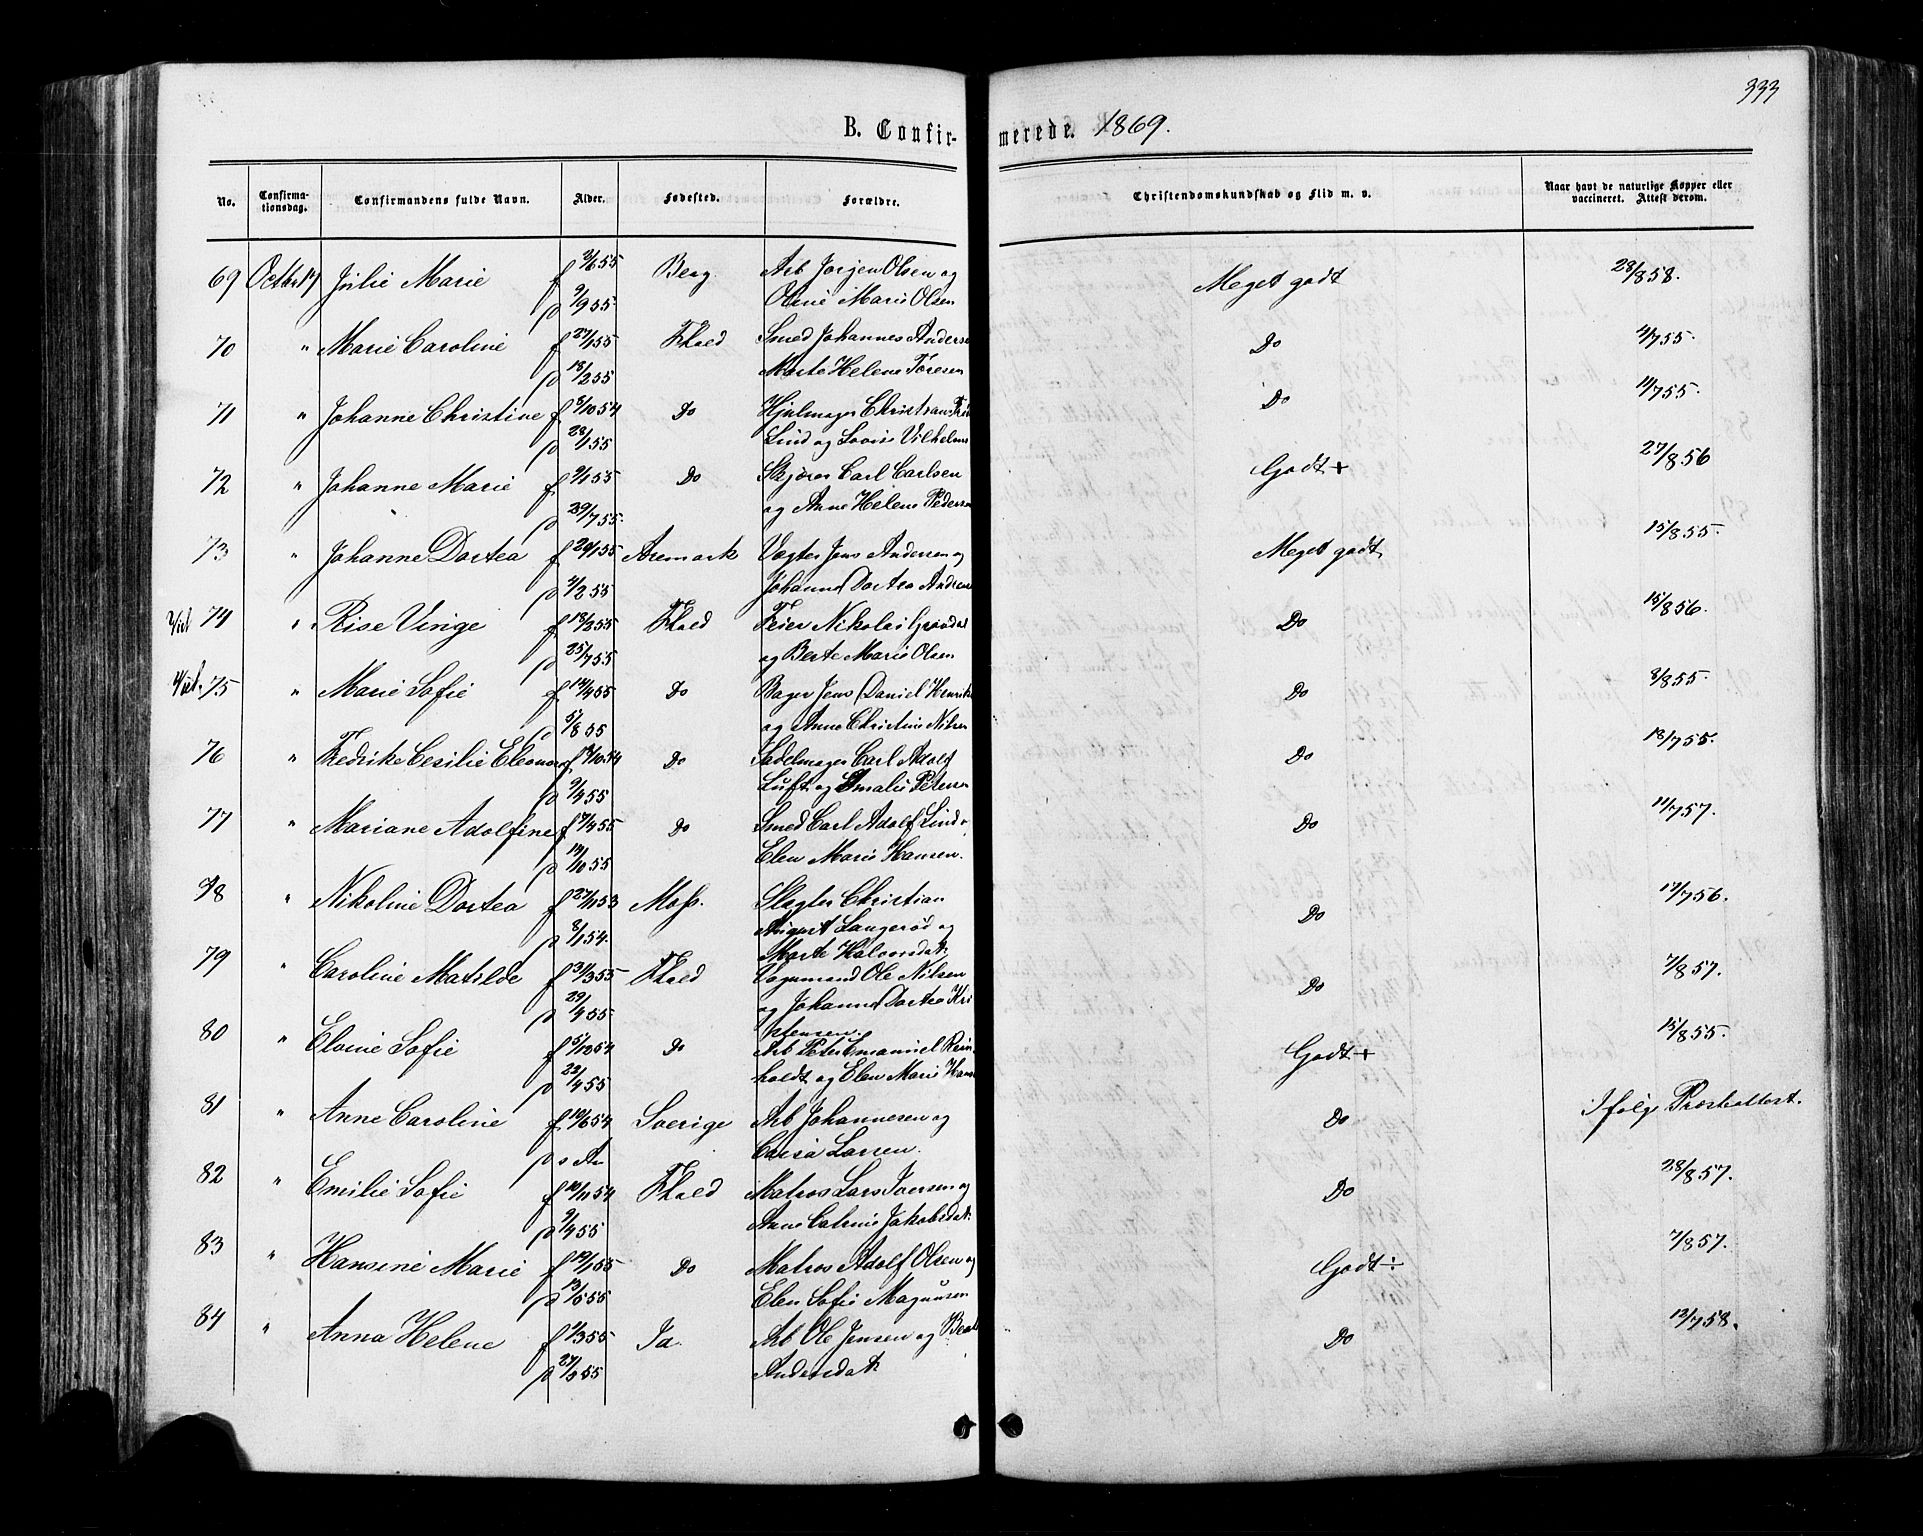 333
B. Confirmerede. 1869.
No. Confirmationsdag. Confirmandens fulde Navn. Alder. Fødested. Forældre. Christendomskundskab og Flid m. v. Naar havt de naturlige Kopper eller vaccineret. Attest derom.
69 Octbr 17 Julie Marie f 2/6 55 Berg. Arb Jørgen Olsen og Meget godt 28/8 58.
p 9/9 55 Oline Marie Olsen
70 " Marie Caroline f 27/1 55 Fhald Smed Johannes Anders Do 4/7 55.
p 18/2 55 Marte Helene Toresen
71 " Johanne Christine f 8/10 54 Do Hjulmager Christian Do 11/7 55.
p 28/1 55 Lind og Lovise Vilhelms
72 " Johanne Marie f 9/1 55 Do Carl Carlsen Godt + 27/8 56
p 29/7 55. og Anne Helene Peders
73 " Johanne Dortea f 20/1 55 Aremark Vagter Jens Andersen og Meget godt 15/8 55.
p 4/2 55 Johanne Dortea Anders
74 " Rise Vinge f 18/3 55 Fhald Feier Nikolai Do 15/8 56.
p 25/7 55 og Berte Marie Olsen
75 " Marie Sofie f 14/4 55 Do Bager Jens Daniel Henrik Do 8/8 55.
p 5/8 55 og Anne Christine Nilsen
76 " Fredrike Cesilie Eleonora f /10 54 Do Sadelmager Carl Adolf Do 18/7 55.
p 9/4 55 Luft og Amalie Petersen
77 " Mariane Adolfine f 7/4 55 Do Smed Carl Adolf Lind Do 11/7 57.
p 14/10 55 Elen Marie Hansen.
78 " Nikoline Dortea f 27/11 53 Moss. Slagter Christian Do 17/7 56.
p 8/1 54. August Langerød og
Marte Halvorsdat.
79 " Caroline Matilde f 31/3 55 Fhald Vognmand Ole Nilsen Do 7/8 57.
p 29/4 55 og Johanne Dortea Kri
stensen.
80 " Elvine Sofie f 5/10 54 Do Arb Peter Emanuel Rein Godt + 15/8 55.
p 22/4 55 holdt og Elen Marie Hans
81 " Anne Caroline f 19/6 54 Sverige Arb Johannesen og Do Ifølge Præsteattest.
p s A Caisa Larsen.
82 " Emilie Sofie f 10/11 54 Fhald Matros Lars Iversen og Do 28/8 57.
p 9/4 55 Anne Catrine Jakobsdat.
83 " Hansine Marie f 19/1 55 Do Matros Adolf Olsen og Godt ÷ 7/8 57.
p 13/5 55 Elen Sofie Magnusen
84 " Anna Helene f 9/3 55 Id. Arb Ole Jensen og Beate Do 12/7 58.
p 27/5 55 Andersdat.